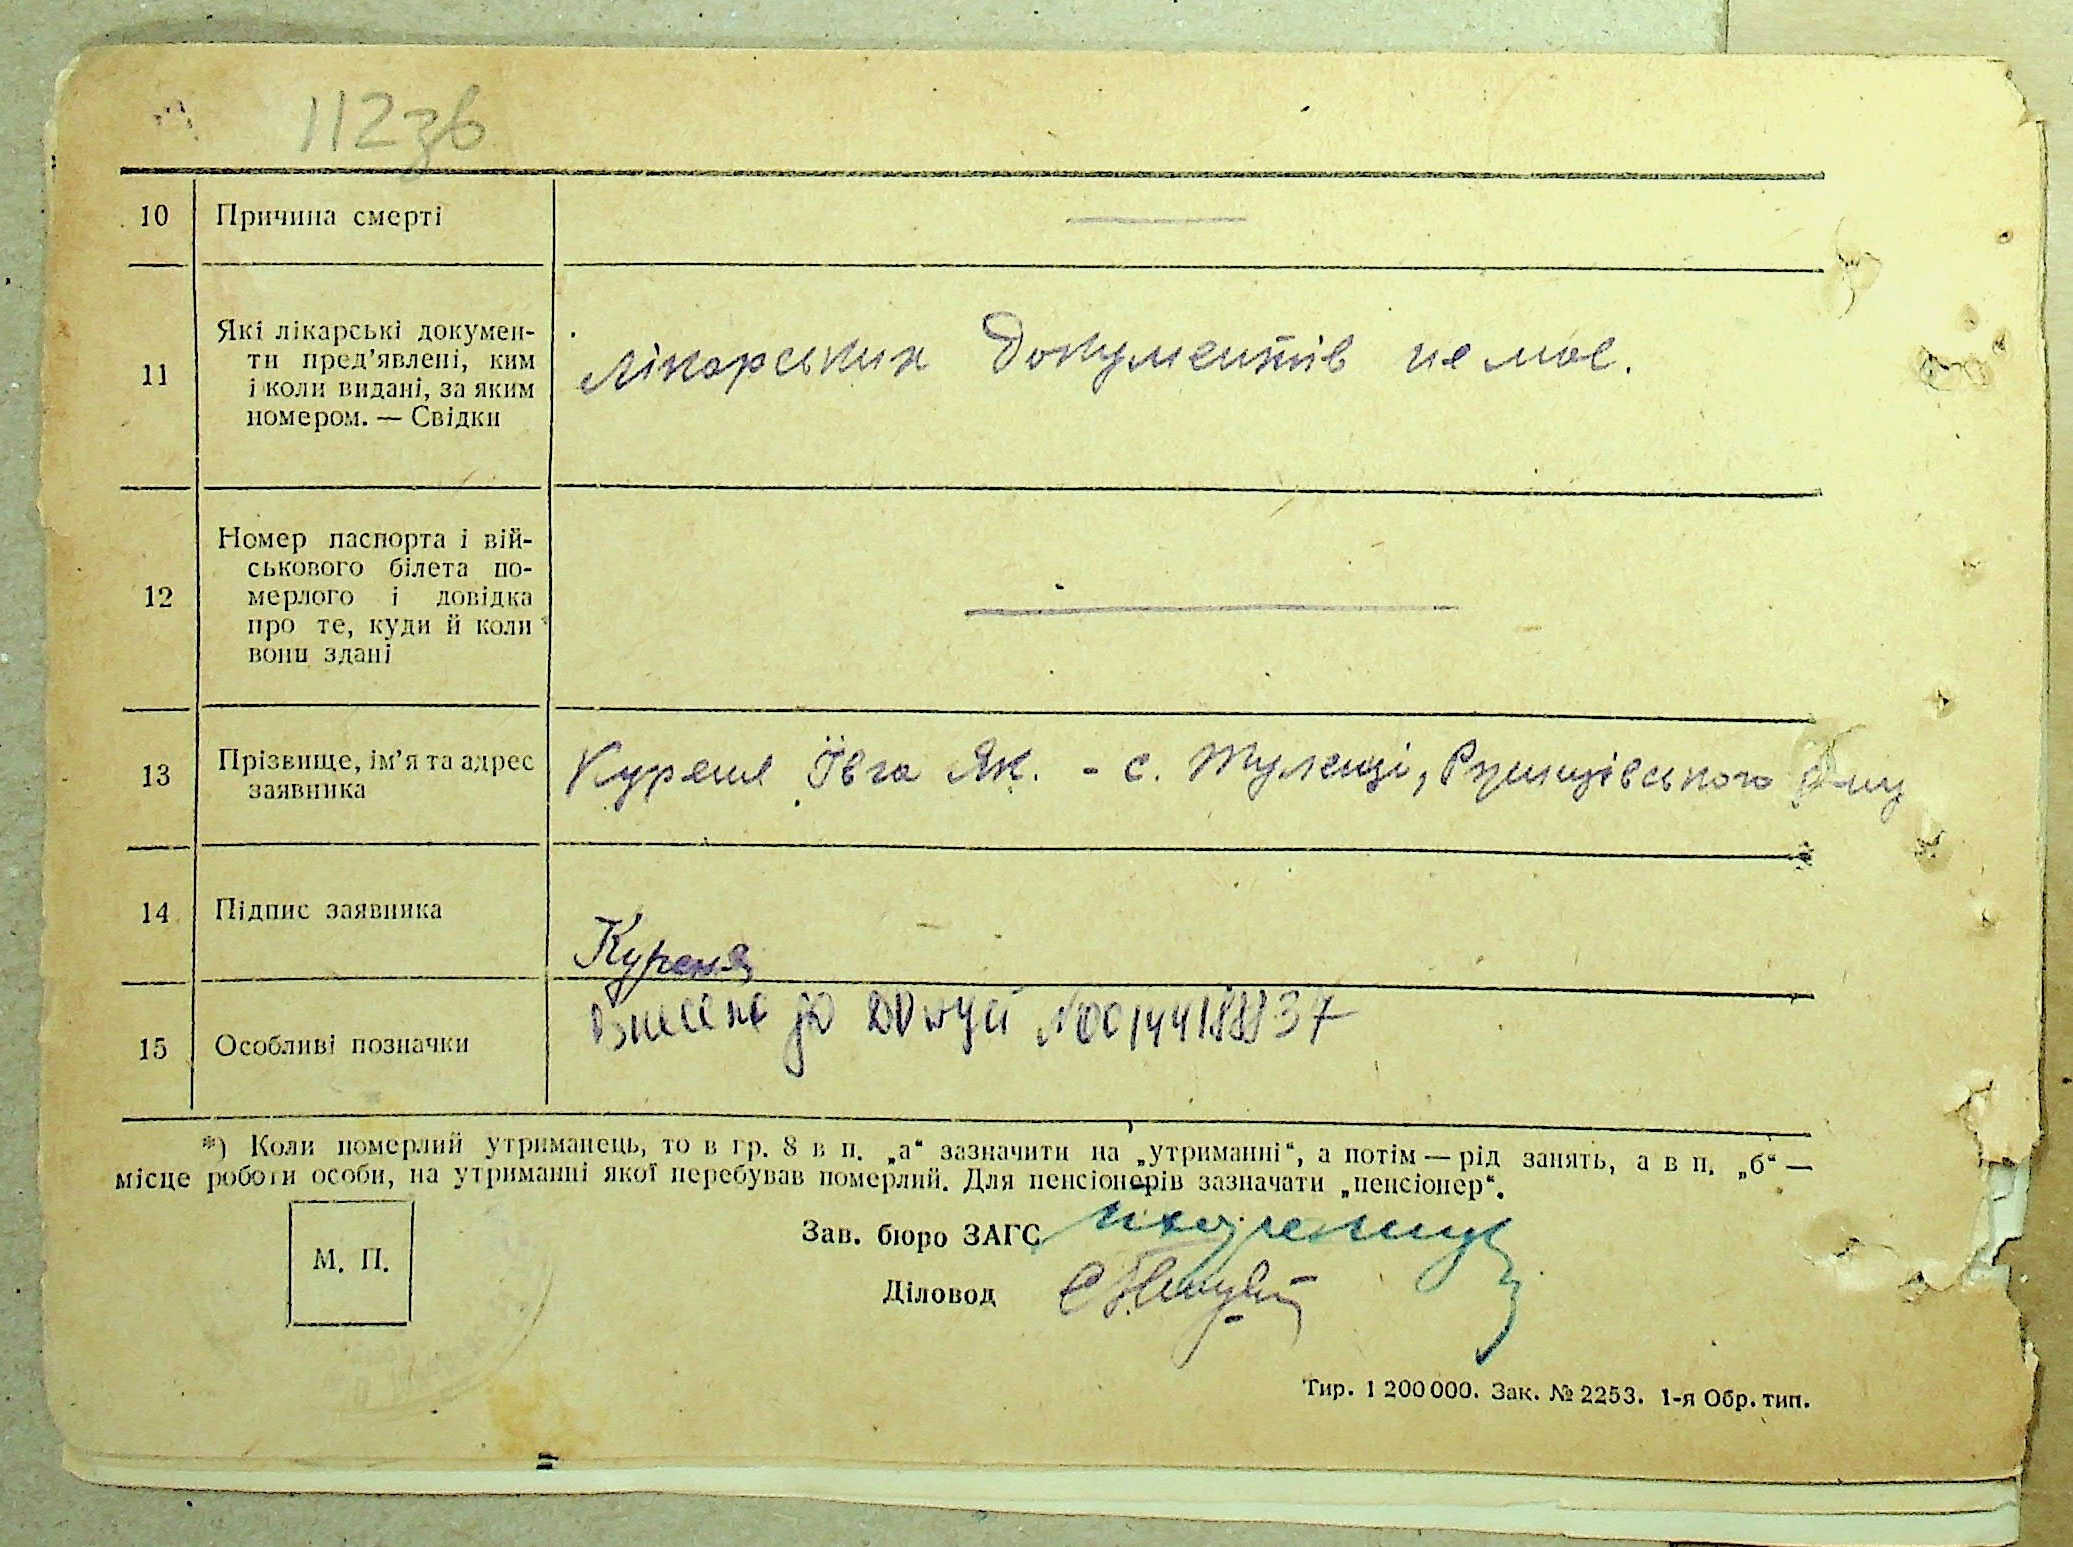 112зв
10 Причина смерті —
11 Які лікарські докумен-
ти пред’явлені, ким
і коли видані, за яким
номером. — Свідки
Лікарських документів не має.
12 Номер паспорта і вій-
ськового білета по-
мерлого і довідка
про те, куди й коли
вони здані
—
13 Прізвище, ім’я та адрес
заявника
Куреня Ївга Як. - с. Тулинці, Ржищівського
14 Підпис заявника
Куреня
15 Особливі позначки
Внесено до ДРАЦСГ №00144188837
*) Коли померлий утриманець, то в гр. 8 в п. „а“ зазначити на „утриманні“, а потім — рід занять, а в п. „б“ —
місце роботи особи, на утриманні якої перебував померлий. Для пенсіонерів зазначати „пенсіонер“.
М. П.
Зав. бюро ЗАГС
Діловод
Тир. 1 200 000. Зак. № 2253. 1-я Обр. тип.